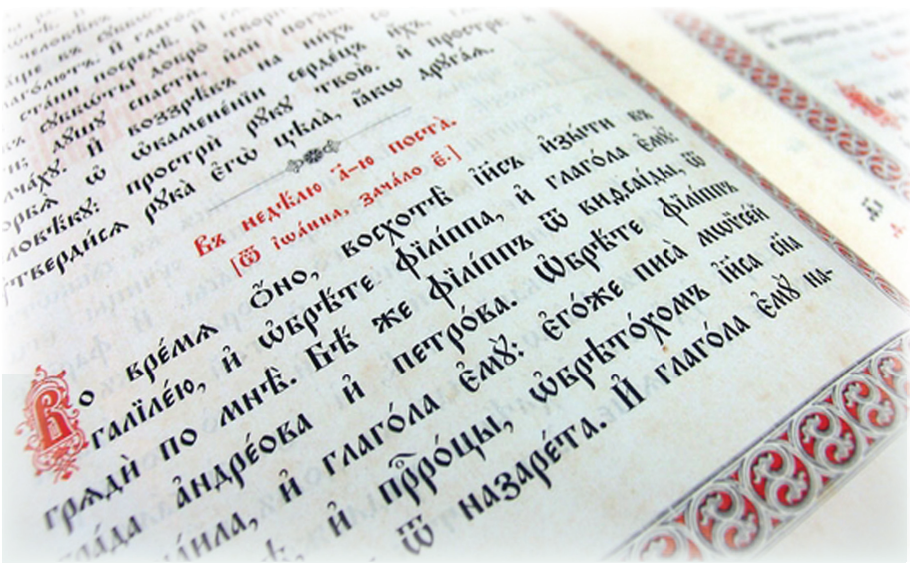 ста́ни посредѣ̀. И҆ глаго́ла
добро̀ твори́ти
дꙋ́шꙋ спастѝ, и҆лѝ погꙋби́ти
И҆ воззрѣ́въ на ни́хъ со
ѡ҆ ѡ҆камене́нїи серде́цъ и҆́хъ, глаго́ла
ловѣ́кꙋ: прострѝ рꙋ́кꙋ твою̀. и҆ прострѐ: и҆
ᲂутверди́сѧ рꙋка̀ є҆гѡ̀ цѣла̀, ꙗ҆́кѡ дрꙋга́ѧ.
Въ недѣ́лю а҃-ю поста̀.
[Ѿ і҆ѡа́нна, зача́ло є҃.]
Во вре́мѧ ѻ҆́но, восхотѣ̀ і҆и҃съ и҆зы́ти въ
галїле́ю, и҆ ѡ҆брѣ́те фїлі́ппа, и҆ глаго́ла є҆мꙋ̀:
грѧдѝ по мнѣ̀. Бѣ́ же фїлі́ппъ ѿ виѳсаі́ды, ѿ
гра́да а҆ндре́ова и҆ петро́ва. Ѡ҆брѣ́те фїлі́ппъ
наѳана́ила, и҆ глаго́ла є҆мꙋ̀: є҆го́же писа̀ мѡѷсе́й
и҆ прⷪ҇ро́цы, ѡ҆брѣто́хомъ і҆и҃са сн҃а
ѿ назаре́та. И҆ глаго́ла є҆мꙋ̀ на-